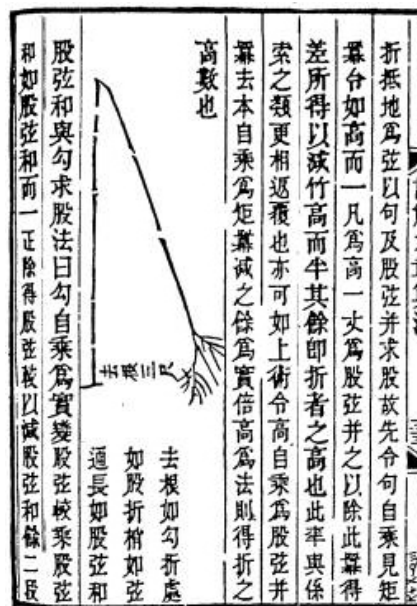 折抵地爲弦以句及股弦并求股故先令句自乘見矩
羃台如高而一凡爲高一丈爲股弦并之以除此羃得
差所得以減竹高而半其餘即折者之高也此率與係
索之類更相返覆也亦可如上術令高自乘爲股弦并
羃去本自乘爲矩羃減之餘爲實倍高爲法則得折之
高數也
去根三尺
去根如勾折處
如股折梢如弦
通長如股弦和
股弦和與勾求股法曰勾自乘爲實變股弦較乘股弦
和如股弦和而一正除得股弦較以減股弦和餘二段